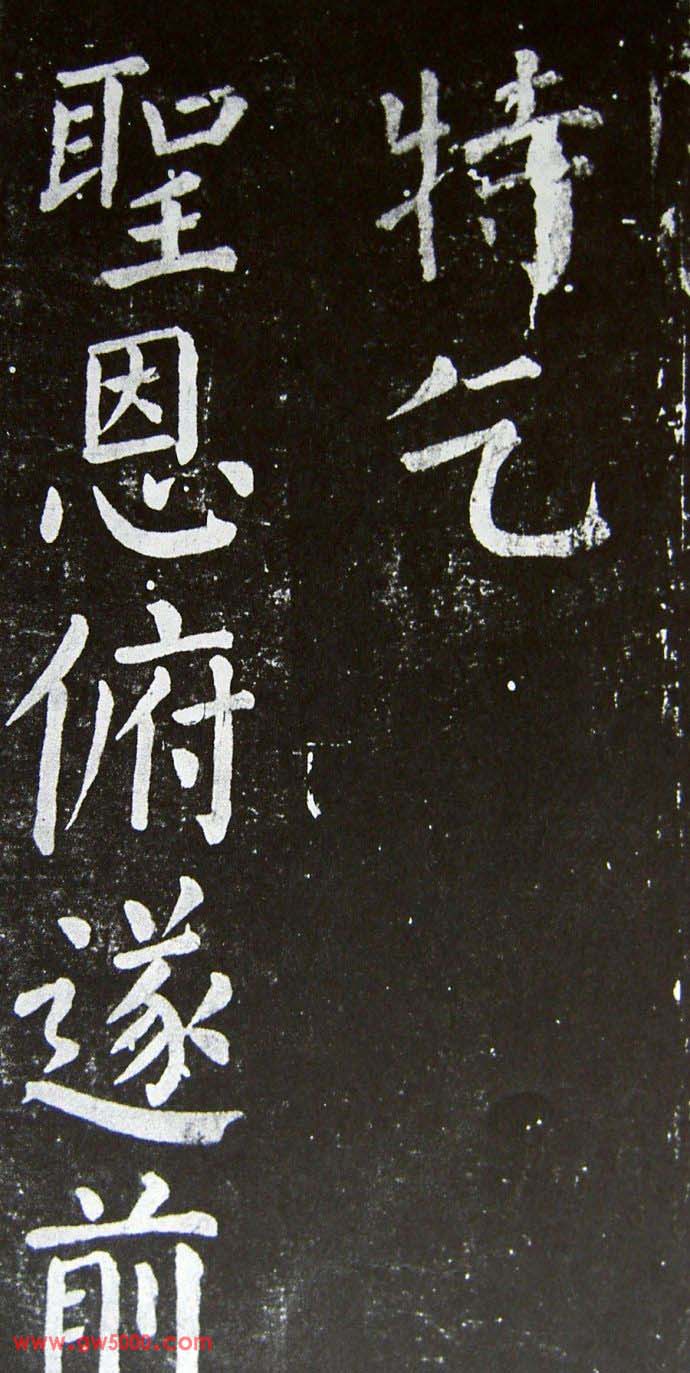 特乞
聖恩俯遂前
www.gw5000.com